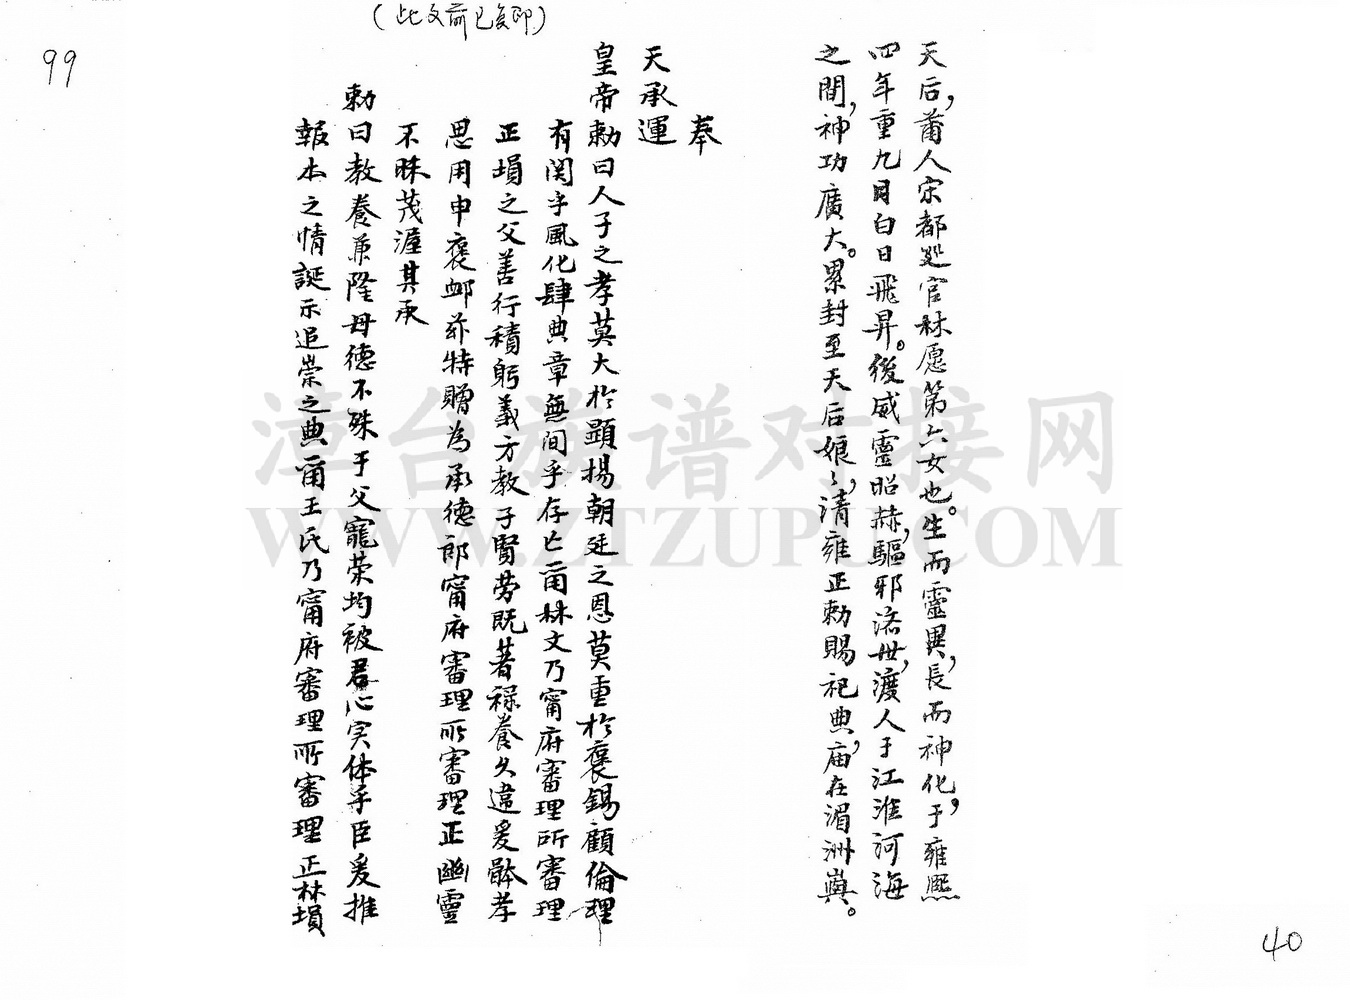 (此文前已复印)
99
天后，莆人宋都巡官林愿第六女也。生而靈異，長而神化，于雍熙
四年重九日白日飛昇。後威靈昭赫，驅邪濟世，渡人于江淮河海
之間，神功廣大。累封至天后娘々，清雍正勅賜祀典，庙在湄洲嶼。
奉
天承運
皇帝勅曰人子之孝莫大於顕揚朝廷之恩莫重於褒錫顧倫理
有関乎風化肆典章無间乎存亡爾林文乃甯府審理所審理
正塤之父善行積躬義方教子賢劳既著禄養久違爰體孝
思用申褒衈茲特贈為承德郎甯府審理所審理正幽靈
不昧茂渥其承
勅曰教養兼隆母德不殊于父寵荣均被君心実体乎臣爰推
報本之情誕示追崇之典爾王氏乃甯府審理所審理正林塤
40
漳台族谱对接网
WWW.ZTZUPU.COM